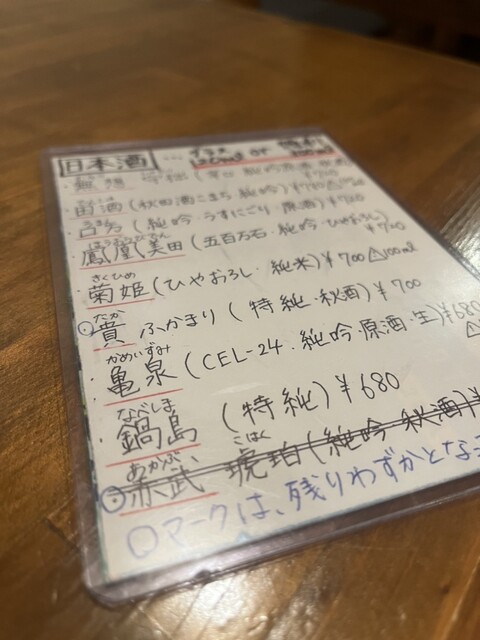 日本酒 … グラス or 徳利
・無想
・田酒(秋田酒こまち・純吟)¥
(純吟・うすにごり 原酒)¥700
ほうおうびでん
鳳凰美田(五百万石・純吟・ひやおろし)¥700
きくひめ
・菊姫(ひやおろし・純米)¥700△100ml
たか
・貴 ふかまり(特純・秋酒)¥700
かめいずみ
・亀泉(CEL-24・純吟・原酒・生)¥680
なべしま
・鍋島(特純)¥680
あかぶ こはく
・赤武 琥珀(純吟 秋酒)¥
○マークは、残りわずかとな